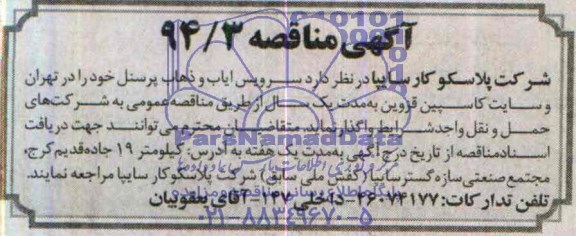 آگهی مناقصه ۹۴/۳
شرکت پلاسکو کار سایپا در نظر دارد سرویس ایاب و ذهاب پرسنل خود را در تهران
و سایت کاسپین قزوین به مدت یک سال از طریق مناقصه عمومی به شرکت‌های
حمل و نقل واجد شرایط واگذار نماید. متقاضیان محترم می‌توانند جهت دریافت
اسناد مناقصه از تاریخ درج آگهی به مدت یک هفته به آدرس: کیلومتر ۱۹ جاده قدیم کرج،
مجتمع صنعتی سازه گستر سایپا (کفش ملی سابق) شرکت پلاسکو کار سایپا مراجعه نمایند.
تلفن تدارکات: ۴۶۰۷۴۱۷۷-داخلی ۱۴۷-آقای یعقوبیان
ParsNamadData
۰۲۱-۸۸۳۴۹۶۷۰-۵